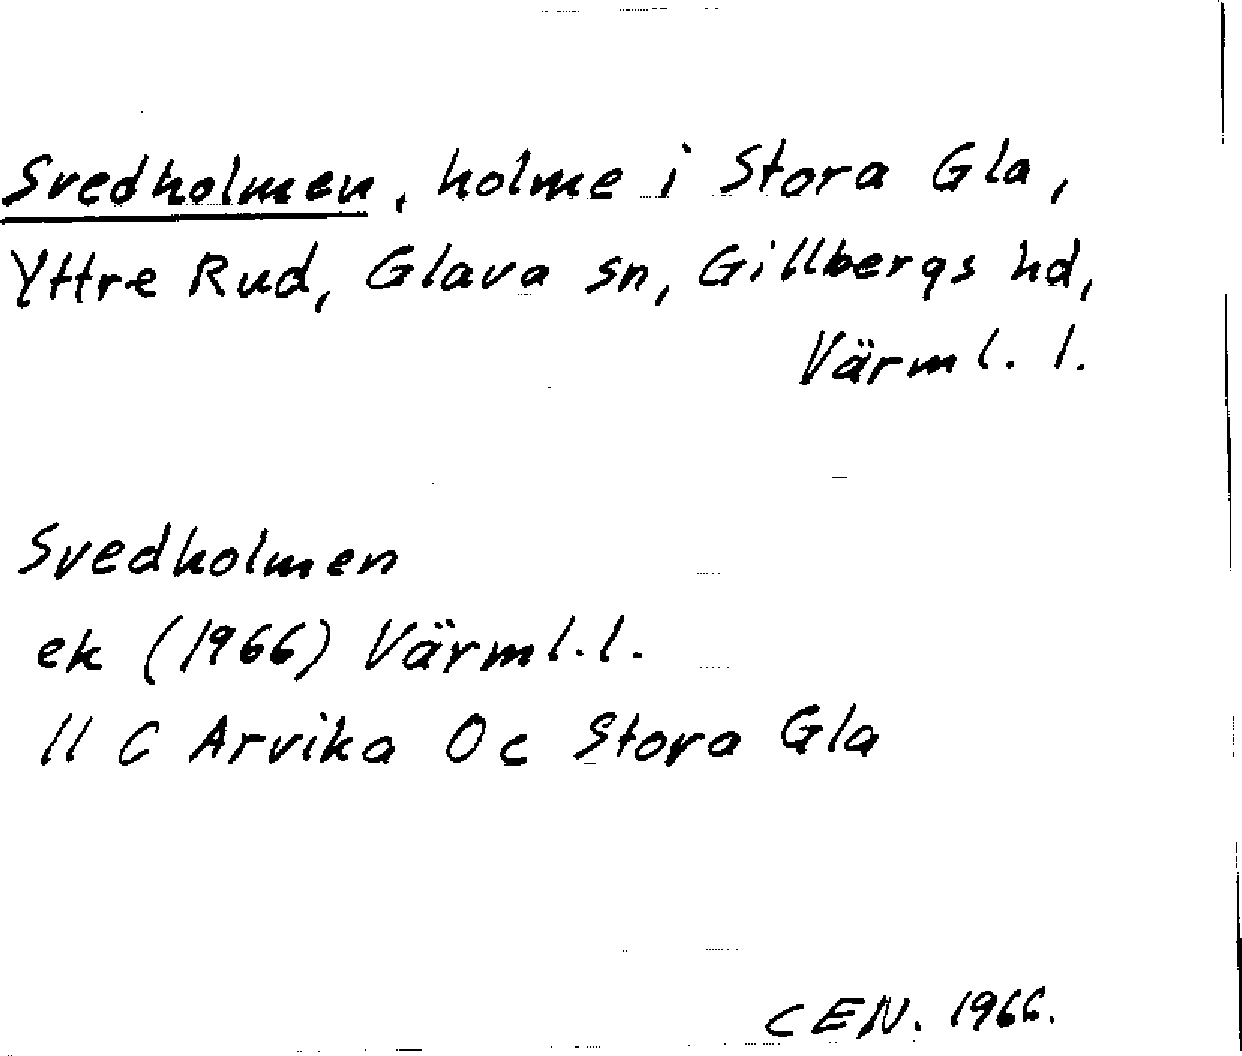 Svedholmen, holme i Stora Gla,
Yttre Rud, Glava sn, Gillbergs hd,
Värml. l.
Svedholmen
ek (1966) Värml. l.
11 C Arvika 0 c Stora Gla
CEN. 1966.